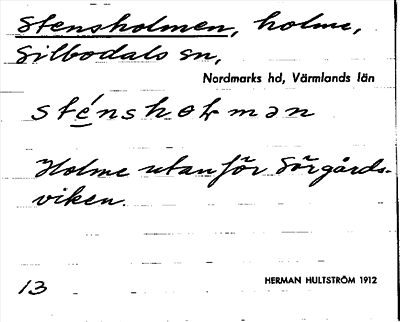 Stensholmen, holme,
Silbodals sn,
Nordmarks hd, Värmlands län
Holme utanför Sörgårds-
viken.
13 HERMAN HULTSTRÖM 1912